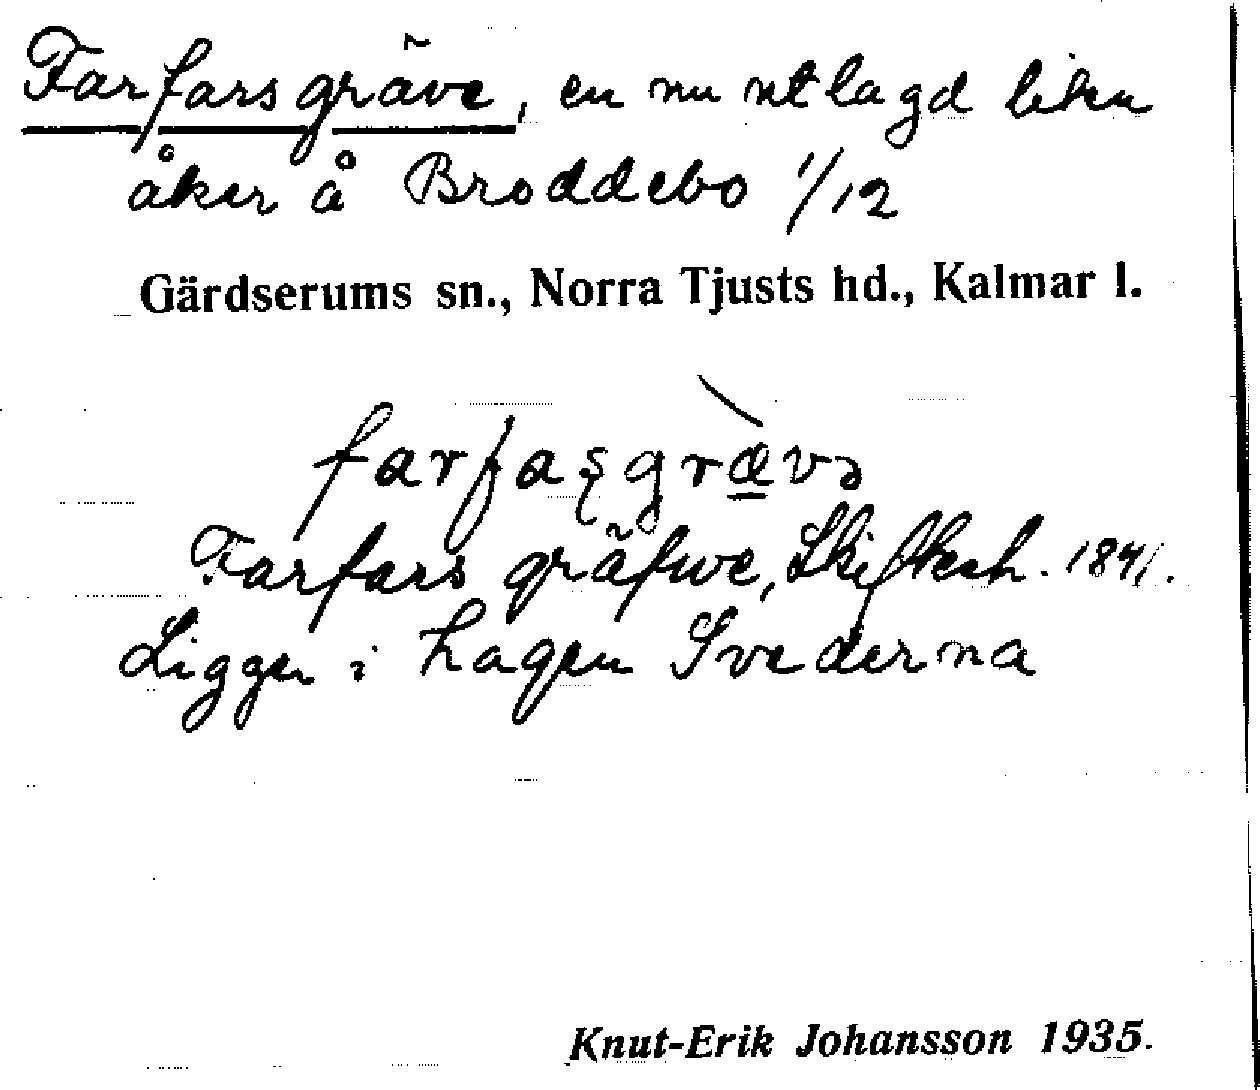 Farfarsgräve, en nu utlagd liten
åker å Broddebo 1/12
Gärdserums sn., Norra Tjusts hd., Kalmar l.
farfaşgrævə
Farfars gräfwe, Skifteh. 1841.
Ligger i hagen Svederna
Knut-Erik Johansson 1935.